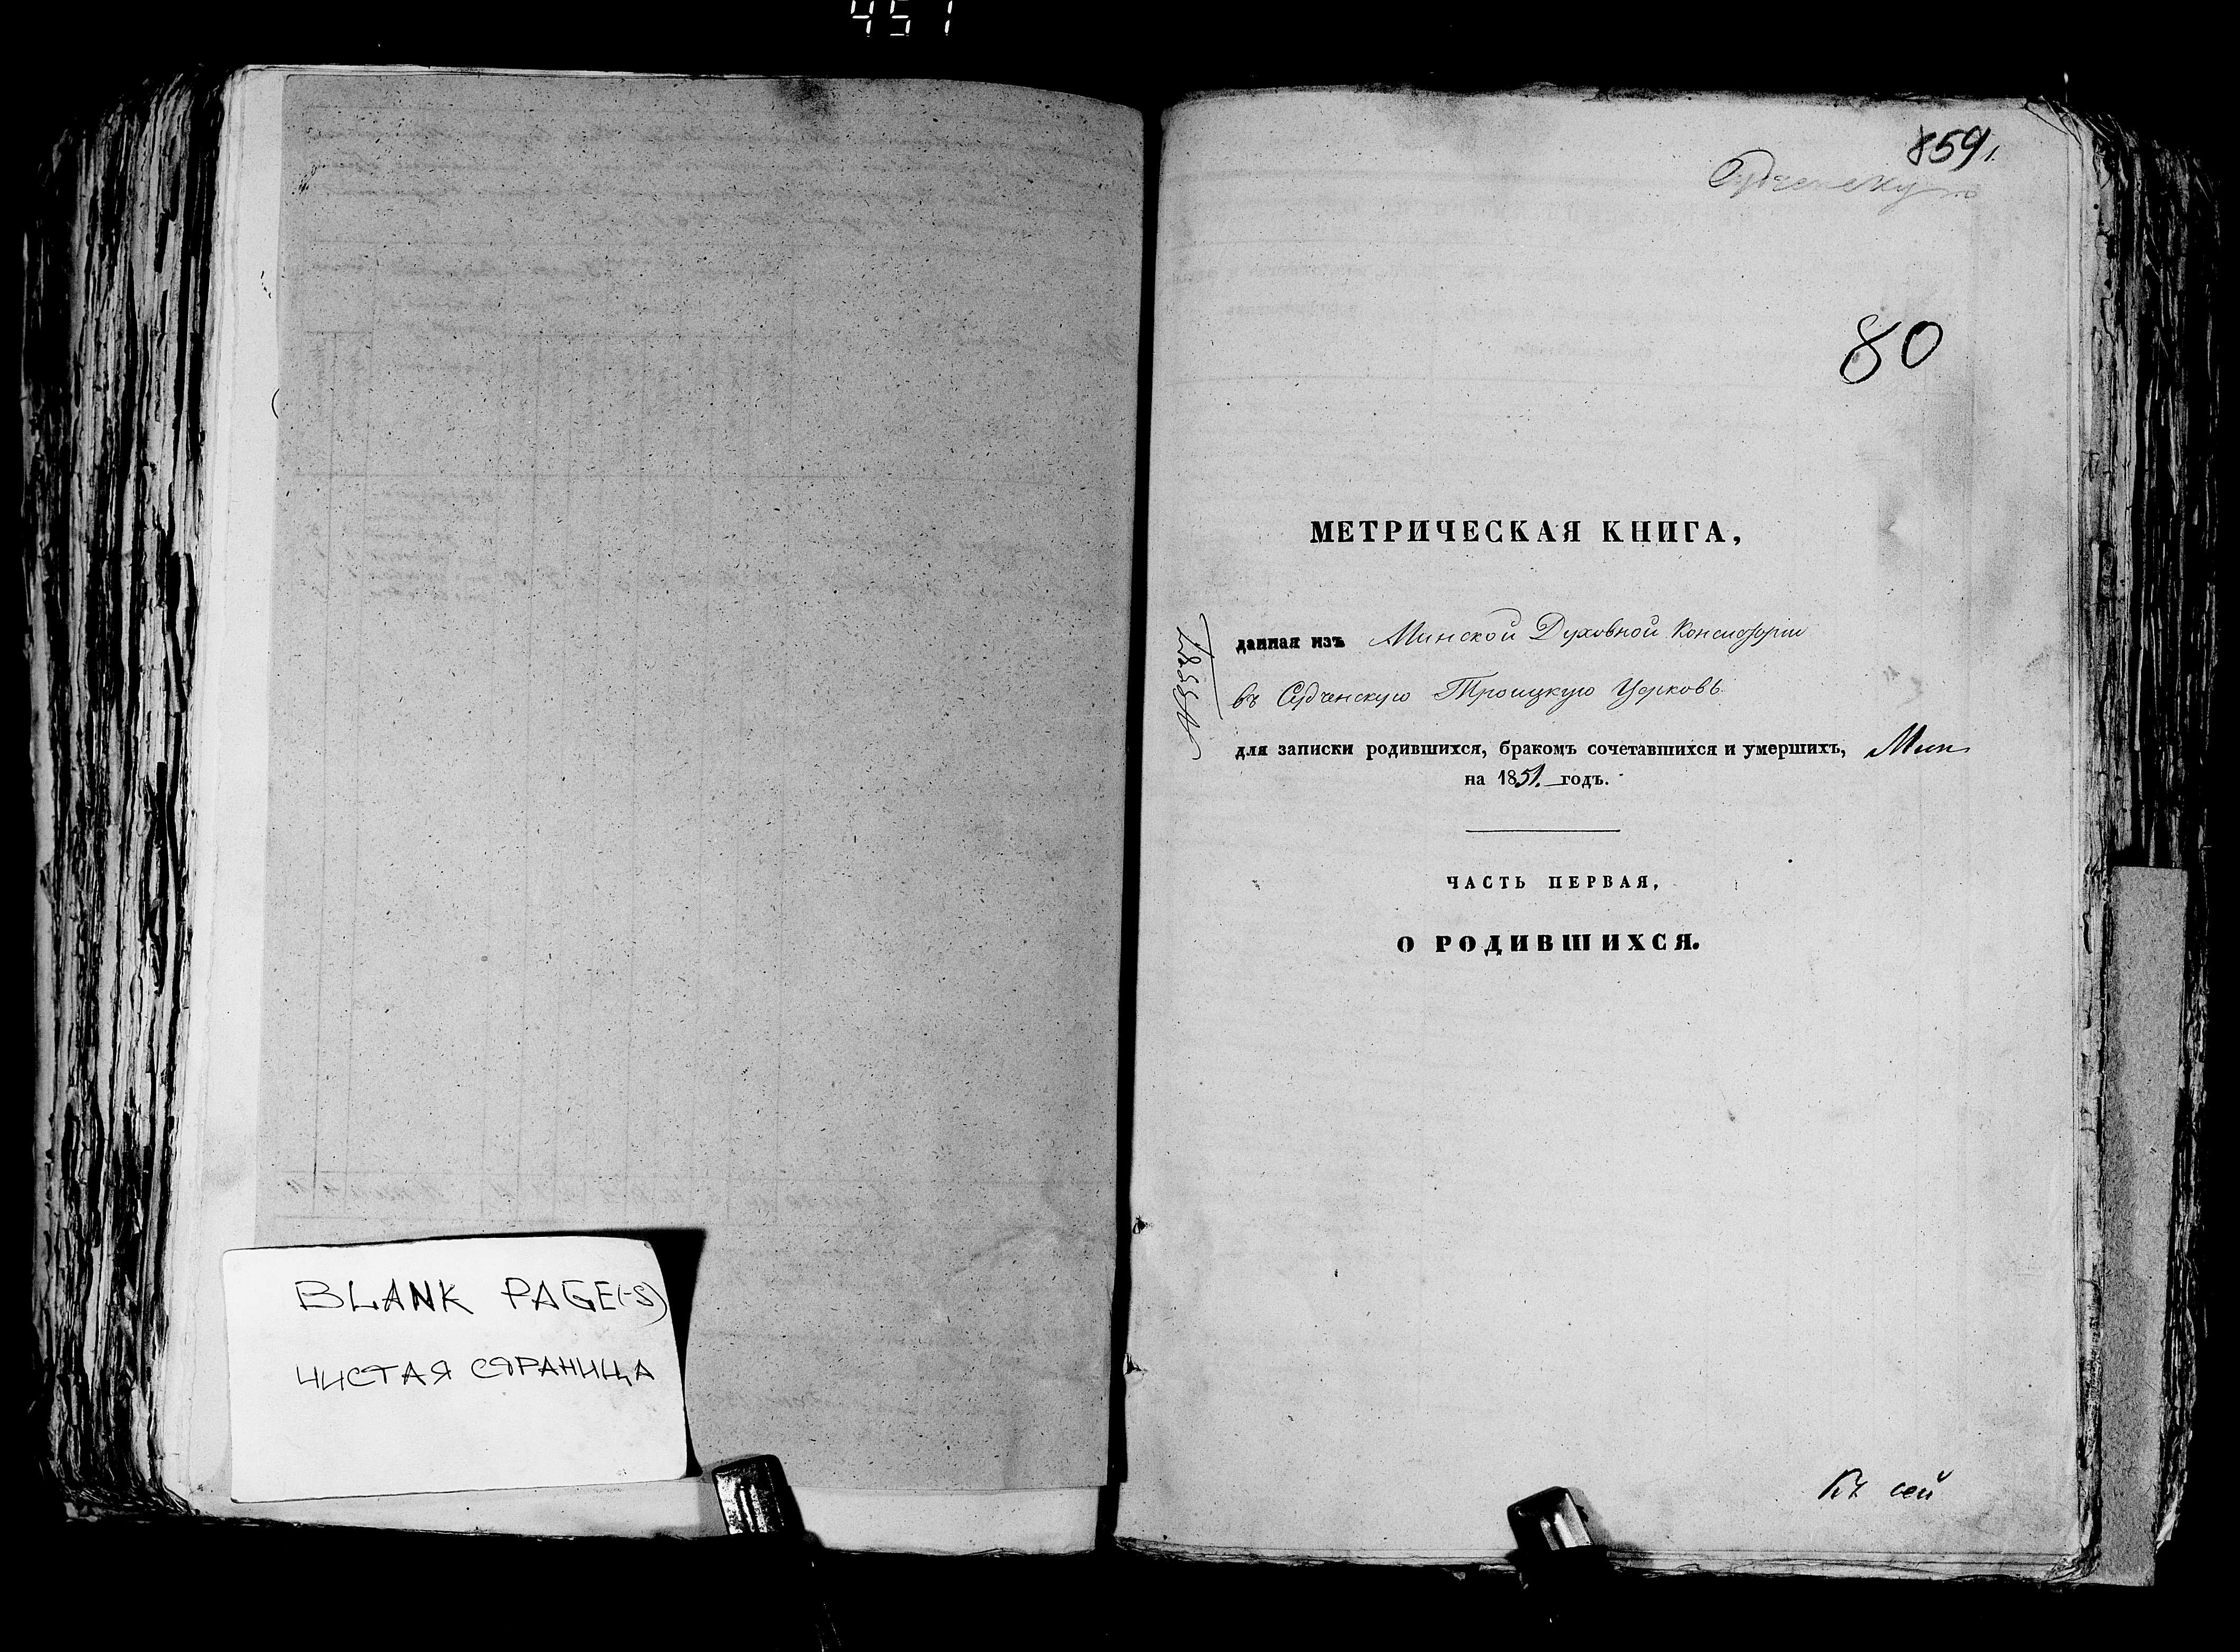 451
BLANK PAGE(-S)
ЧИСТАЯ СТРАНИЦА
859.
Судченскую
80
МЕТРИЧЕСКАЯ КНИГА,
данная изъ Минской Духовной Консисторіи
въ Судченскую Троицкую Церковь
для записки родившихся, бракомъ сочетавшихся и умершихъ, Мин
на 1851. годъ.
ЧАСТЬ ПЕРВАЯ,
О РОДИВШИХСЯ.
Къ сей